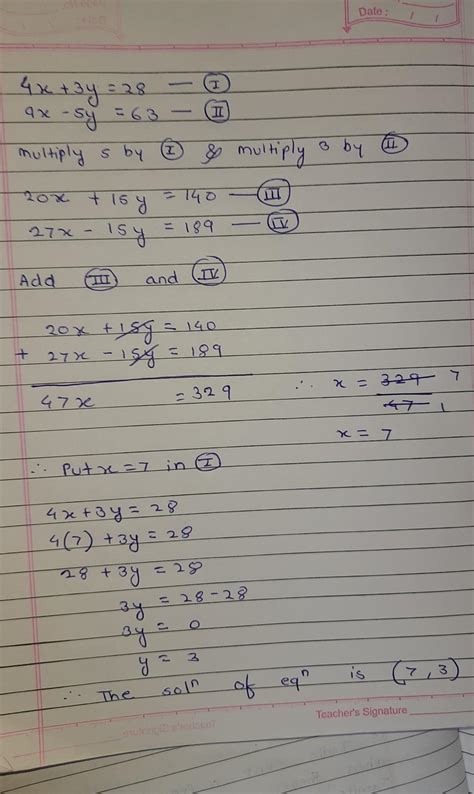 Date :
4x + 3y = 28 — I
9x - 5y = 63 — II
multiply 5 by I & multiply 3 by II
20x + 15y = 140 — III
27x - 15y = 189 — IV
Add III and IV
20x + 15y = 140
+ 27x - 15y = 189
47x = 329 ∴ x = 329 7
47 1
x = 7
∴ Put x = 7 in I
4x + 3y = 28
4(7) + 3y = 28
28 + 3y = 28
3y = 28 - 28
3y = 0
y = 3
∴ The solⁿ of eqⁿ is (7, 3)
Teacher's Signature